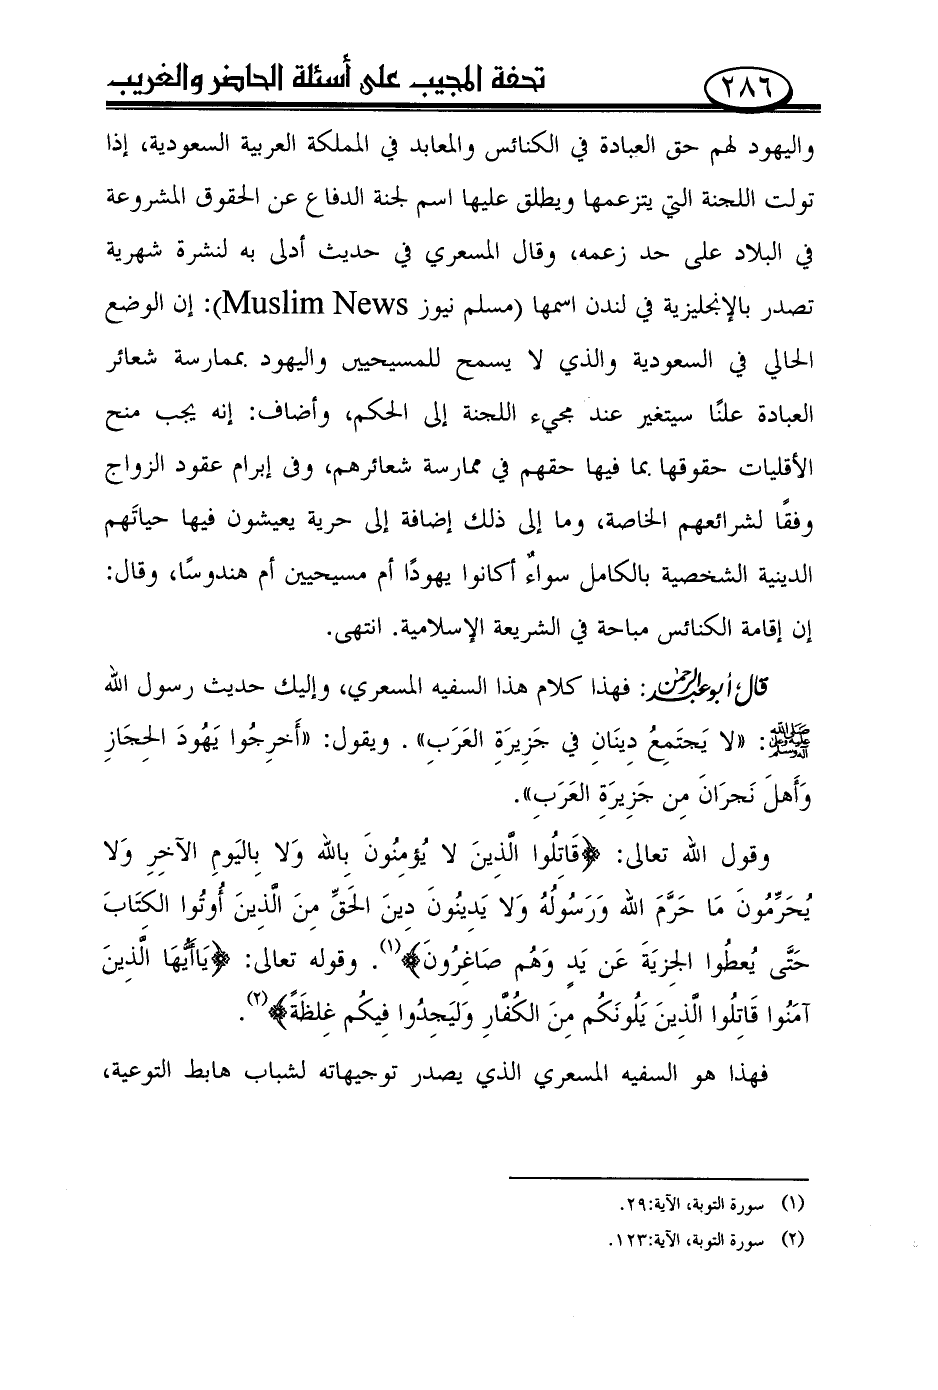 تحفة المجيب على أسئلة الحاضر والغريب ٢٨٦
واليهود لهم حق العبادة في الكنائس والمعابد في المملكة العربية السعودية، إذا
تولت اللجنة التي يتزعمها ويطلق عليها اسم لجنة الدفاع عن الحقوق المشروعة
في البلاد على حد زعمه، وقال المسعري في حديث أدلى به لنشرة شهرية
تصدر بالإنجليزية في لندن اسمها (مسلم نيوز Muslim News): إن الوضع
الحالي في السعودية والذي لا يسمح للمسيحيين واليهود بممارسة شعائر
العبادة علنًا سيتغير عند مجيء اللجنة إلى الحكم، وأضاف: إنه يجب منح
الأقليات حقوقها بما فيها حقهم في ممارسة شعائرهم، وفى إبرام عقود الزواج
وفقًا لشرائعهم الخاصة، وما إلى ذلك إضافة إلى حرية يعيشون فيها حياتَهم
الدينية الشخصية بالكامل سواءٌ أكانوا يهودًا أم مسيحيين أم هندوسًا، وقال:
إن إقامة الكنائس مباحة في الشريعة الإسلامية. انتهى.
قال أبو عبد الرحمن: فهذا كلام هذا السفيه المسعري، وإليك حديث رسول الله
صلى الله عليه وآله وسلم: «لا يَجتَمِعُ دِينَانِ في جَزِيرَةِ العَرَبِ». ويقول: «أَخرِجُوا يَهُودَ الحِجَازِ
وَأَهلَ نَجرَانَ مِن جَزِيرَةِ العَرَبِ».
وقول الله تعالى: ﴿قَاتِلُوا الَّذِينَ لا يُؤمِنُونَ بِالله وَلا بِاليَومِ الآخِرِ وَلا
يُحَرِّمُونَ مَا حَرَّمَ الله وَرَسُولُهُ وَلا يَدِينُونَ دِينَ الحَقِّ مِنَ الَّذِينَ أُوتُوا الكِتَابَ
حَتَّى يُعطُوا الجِزيَةَ عَن يَدٍ وَهُم صَاغِرُونَ﴾(١). وقوله تعالى: ﴿يَاأَيُّهَا الَّذِينَ
آمَنُوا قَاتِلُوا الَّذِينَ يَلُونَكُم مِنَ الكُفَّارِ وَلَيَجِدُوا فِيكُم غِلظَةً﴾(٢).
فهذا هو السفيه المسعري الذي يصدر توجيهاته لشباب هابط التوعية،
(١) سورة التوبة، الآية:٢٩.
(٢) سورة التوبة، الآية:١٢٣.